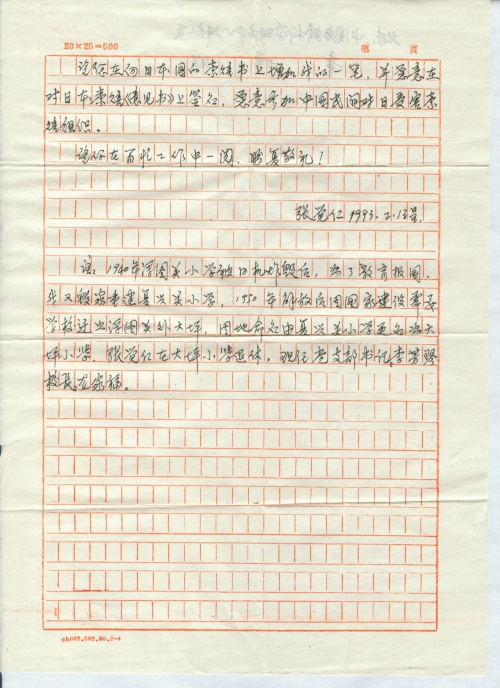 20×25=500
第 页
请你在向日本国的索赔书上增加我的一笔，并愿意在
对日本索赔《意见书》上签名，愿意参加中国民间对日受害索
赔组织。
请你在百忙工作中一阅，盼复敬礼！
张觉仁 1993.2.13呈
注：1940年浮图关小学被日机炸毁后，为了教育报国，
重建复兴关小学，1950年解放后因国家建设需要
学校迁出浮图关到大坪，用地命名由复兴关小学更名为大
坪小学 张觉仁在大坪小学退休。现任党支部书记李
校长龙家福。
ch093.603.80.2-4